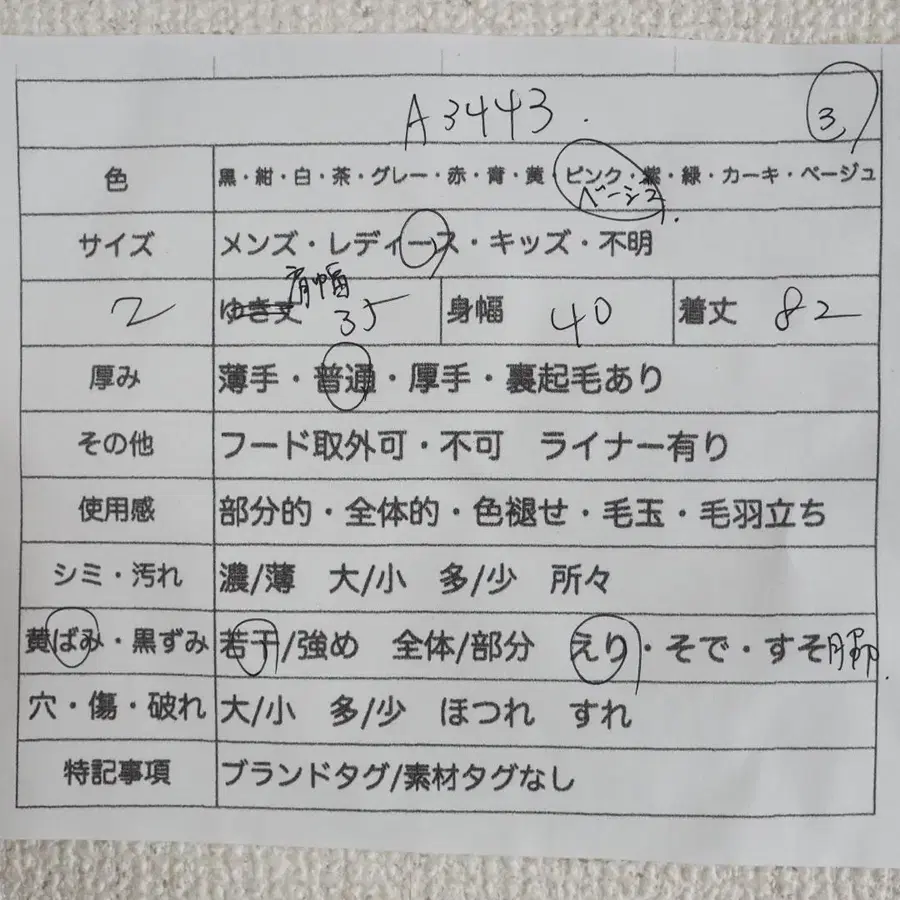 A3443. 3
色 黒・紺・白・茶・グレー・赤・青・黄・ピンク・紫・緑・カーキ・ベージュ
ベージュ
サイズ メンズ・レディース・キッズ・不明
肩幅
2 ゆき丈 35 身幅 40 着丈 82
厚み 薄手・普通・厚手・裏起毛あり
その他 フード取外可・不可 ライナー有り
使用感 部分的・全体的・色褪せ・毛玉・毛羽立ち
シミ・汚れ 濃/薄 大/小 多/少 所々
黄ばみ・黒ずみ 若干/強め 全体/部分 えり・そで・すそ
穴・傷・破れ 大/小 多/少 ほつれ すれ
特記事項 ブランドタグ/素材タグなし